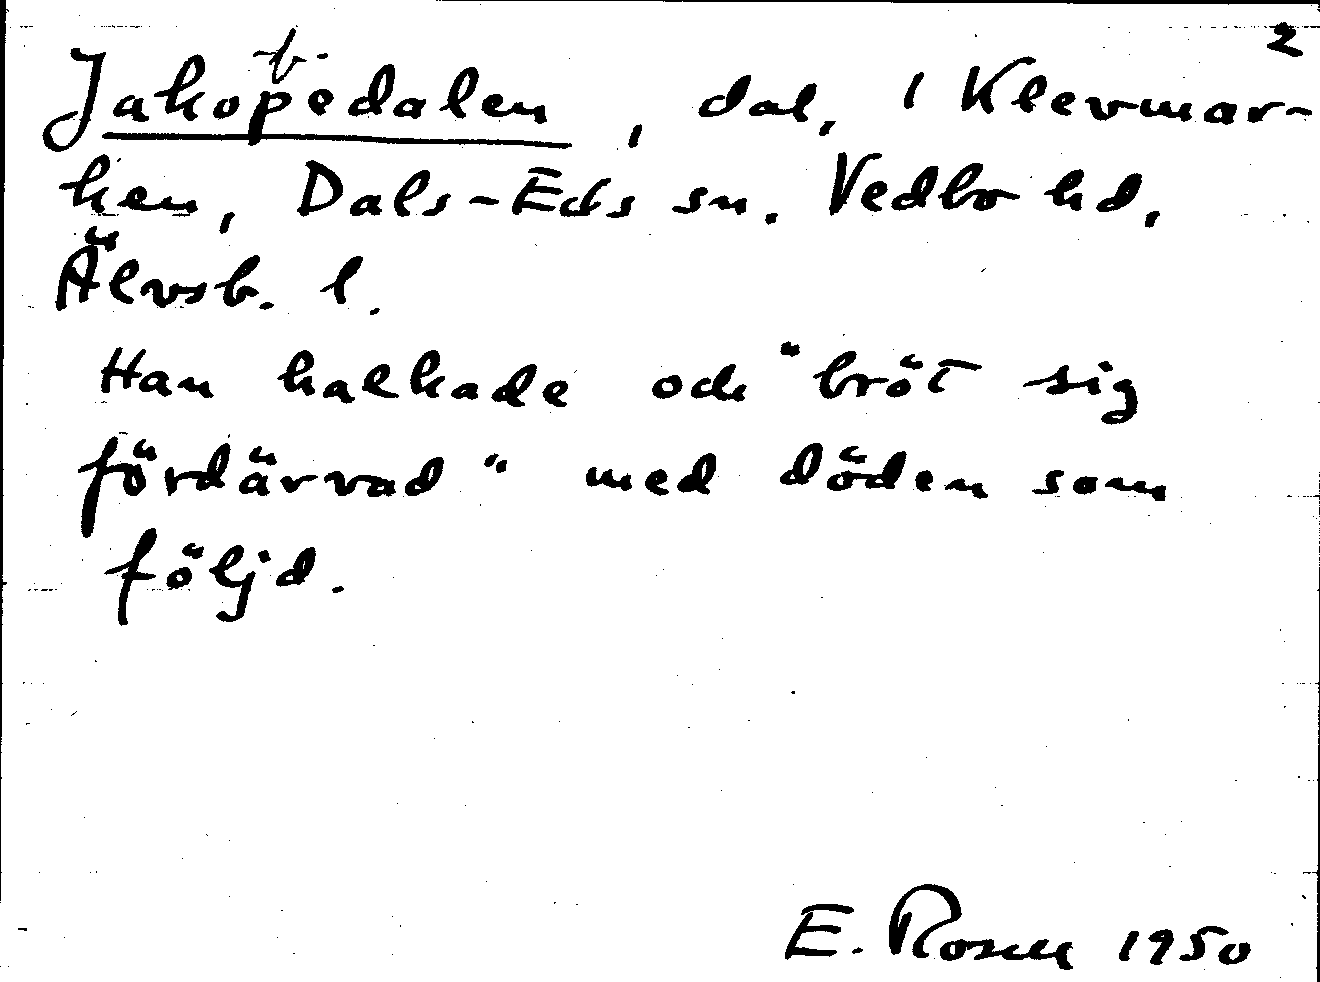 2
-b-
Jakopedalen, dal, i Klevmar-
ken, Dals-Eds sn. Vedbo hd,
Älvsb. l.
Han halkade och "bröt sig
fördärvad" med döden som
följd.
E. Rosell 1950